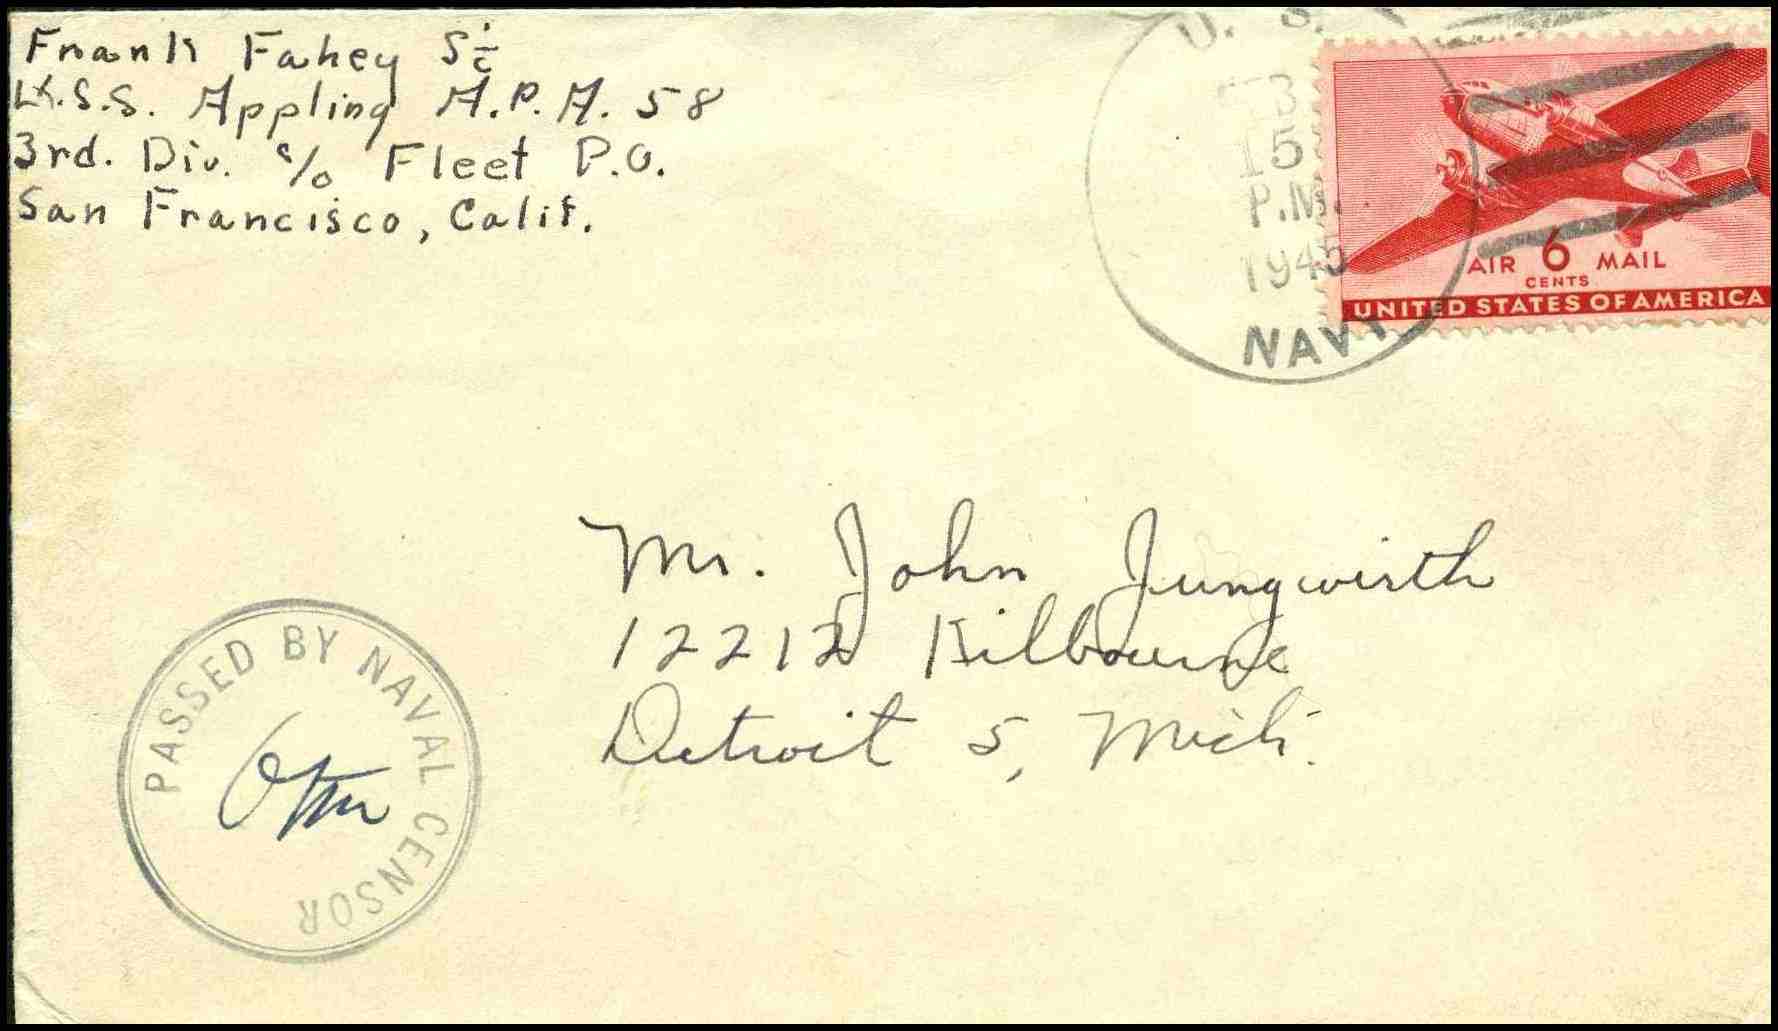 Frank Fahey S 1/c
U.S.S. Appling A.P.A. 58
3rd. Div. c/o Fleet P.O.
San Francisco, Calif.
U. S.
15
P.M.
1945
NAVY
AIR 6 MAIL
CENTS
UNITED STATES OF AMERICA
Mr. John Jungwirth
12212 Kilbourne
Detroit 5, Mich.
PASSED BY NAVAL CENSOR